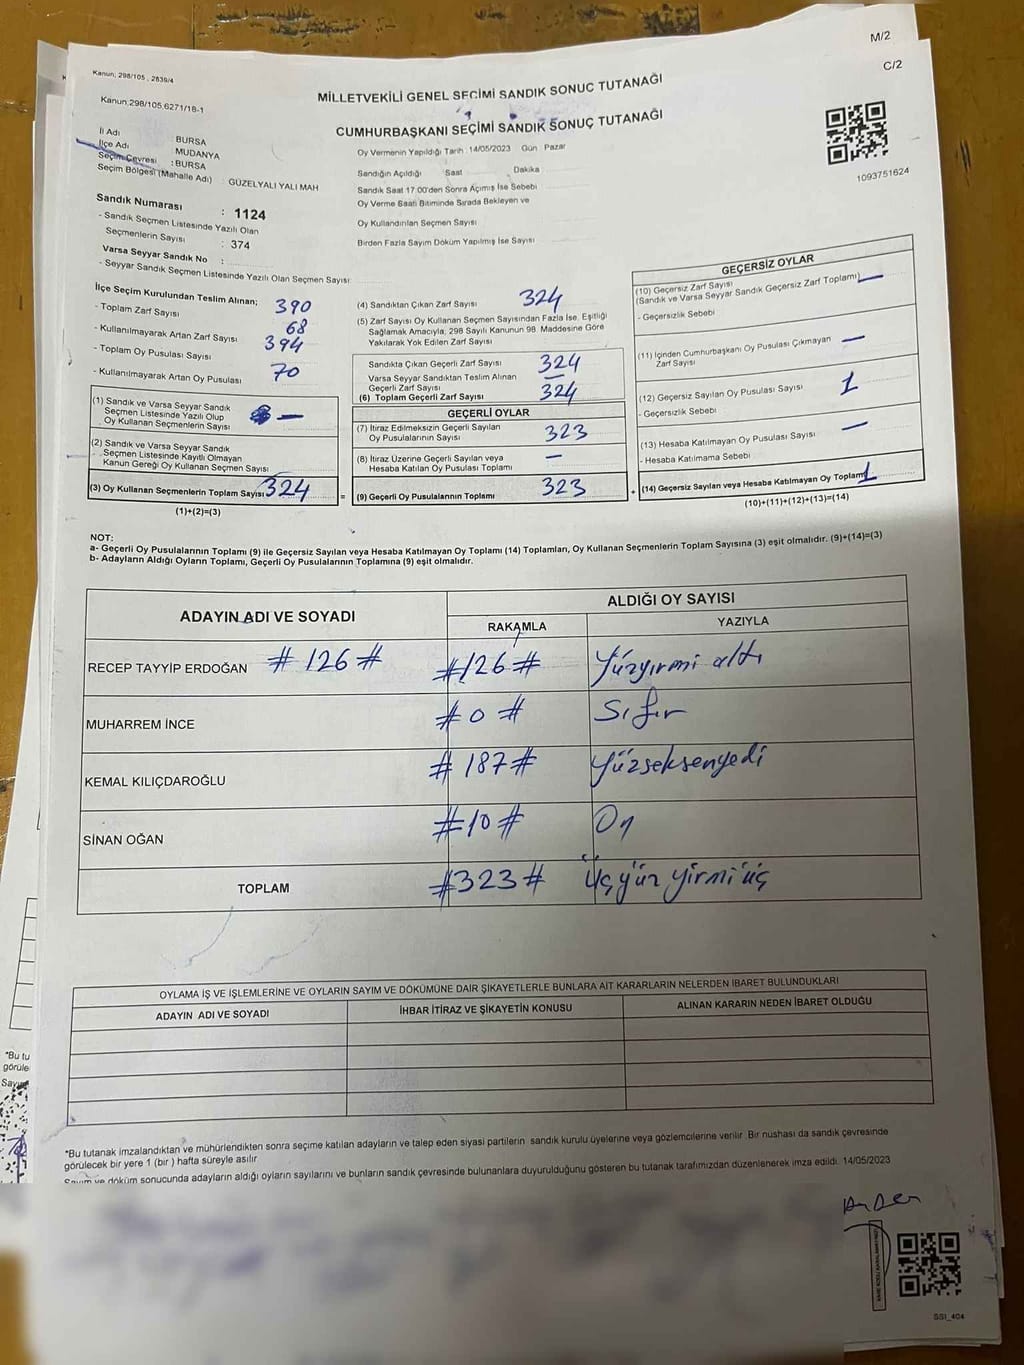 M/2
C/2
Kanun; 298/105 , 2839/4
Kanun;298/105,6271/18-1
MİLLETVEKİLİ GENEL SEÇİMİ SANDIK SONUÇ TUTANAĞI
CUMHURBAŞKANI SEÇİMİ SANDIK SONUÇ TUTANAĞI
İl Adı : BURSA
İlçe Adı : MUDANYA
Seçim Çevresi : BURSA
Seçim Bölgesi (Mahalle Adı) : GÜZELYALI YALI MAH
Oy Vermenin Yapıldığı Tarih :14/05/2023 Gün : Pazar
Sandığın Açıldığı Saat Dakika
Sandık Saat 17.00'den Sonra Açımış İse Sebebi
Oy Verme Saati Bitiminde Sırada Bekleyen ve
Oy Kullandırılan Seçmen Sayısı
Birden Fazla Sayım Döküm Yapılmış İse Sayısı
1093751624
Sandık Numarası : 1124
- Sandık Seçmen Listesinde Yazılı Olan
Seçmenlerin Sayısı : 374
Varsa Seyyar Sandık No :
- Seyyar Sandık Seçmen Listesinde Yazılı Olan Seçmen Sayısı:
İlçe Seçim Kurulundan Teslim Alınan;
- Toplam Zarf Sayısı 390
- Kullanılmayarak Artan Zarf Sayısı 68
- Toplam Oy Pusulası Sayısı 394
- Kullanılmayarak Artan Oy Pusulası 70
(1) Sandık ve Varsa Seyyar Sandık
Seçmen Listesinde Yazılı Olup
Oy Kullanan Seçmenlerin Sayısı —
(2) Sandık ve Varsa Seyyar Sandık
Seçmen Listesinde Kayıtlı Olmayan
Kanun Gereği Oy Kullanan Seçmen Sayısı
(3) Oy Kullanan Seçmenlerin Toplam Sayısı 324
(1)+(2)=(3)
(4) Sandıktan Çıkan Zarf Sayısı 324
(5) Zarf Sayısı Oy Kullanan Seçmen Sayısından Fazla İse, Eşitliği
Sağlamak Amacıyla; 298 Sayılı Kanunun 98. Maddesine Göre
Yakılarak Yok Edilen Zarf Sayısı
Sandıkta Çıkan Geçerli Zarf Sayısı 324
Varsa Seyyar Sandıktan Teslim Alınan
Geçerli Zarf Sayısı —
(6) Toplam Geçerli Zarf Sayısı 324
GEÇERLİ OYLAR
(7) İtiraz Edilmeksizin Geçerli Sayılan
Oy Pusulalarının Sayısı 323
(8) İtiraz Üzerine Geçerli Sayılan veya
Hesaba Katılan Oy Pusulası Toplamı —
= (9) Geçerli Oy Pusulalarının Toplamı 323
GEÇERSİZ OYLAR
(10) Geçersiz Zarf Sayısı
(Sandık ve Varsa Seyyar Sandık Geçersiz Zarf Toplamı) —
- Geçersizlik Sebebi
(11) İçinden Cumhurbaşkanı Oy Pusulası Çıkmayan
Zarf Sayısı —
(12) Geçersiz Sayılan Oy Pusulası Sayısı 1
- Geçersizlik Sebebi
(13) Hesaba Katılmayan Oy Pusulası Sayısı —
- Hesaba Katılmama Sebebi
+ (14) Geçersiz Sayılan veya Hesaba Katılmayan Oy Toplamı 1
(10)+(11)+(12)+(13)=(14)
NOT:
a- Geçerli Oy Pusulalarının Toplamı (9) ile Geçersiz Sayılan veya Hesaba Katılmayan Oy Toplamı (14) Toplamları, Oy Kullanan Seçmenlerin Toplam Sayısına (3) eşit olmalıdır. (9)+(14)=(3)
b- Adayların Aldığı Oyların Toplamı, Geçerli Oy Pusulalarının Toplamına (9) eşit olmalıdır.
ADAYIN ADI VE SOYADI ALDIĞI OY SAYISI
RAKAMLA YAZIYLA
RECEP TAYYİP ERDOĞAN #126# #126# Yüzyirmi altı
MUHARREM İNCE #0# Sıfır
KEMAL KILIÇDAROĞLU #187# Yüzseksenyedi
SİNAN OĞAN #10# On
TOPLAM #323# Üçyüz yirmi üç
OYLAMA İŞ VE İŞLEMLERİNE VE OYLARIN SAYIM VE DÖKÜMÜNE DAİR ŞİKAYETLERLE BUNLARA AİT KARARLARIN NELERDEN İBARET BULUNDUKLARI
ADAYIN ADI VE SOYADI İHBAR İTİRAZ VE ŞİKAYETİN KONUSU ALINAN KARARIN NEDEN İBARET OLDUĞU
*Bu tutanak imzalandıktan ve mühürlendikten sonra seçime katılan adayların ve talep eden siyasi partilerin sandık kurulu üyelerine veya gözlemcilerine verilir. Bir nüshası da sandık çevresinde
görülecek bir yere 1 (bir ) hafta süreyle asılır
Sayım ve döküm sonucunda adayların aldığı oyların sayılarını ve bunların sandık çevresinde bulunanlara duyurulduğunu gösteren bu tutanak tarafımızdan düzenlenerek imza edildi. 14/05/2023
*Bu tu
görüle
Sayım
SSI_404